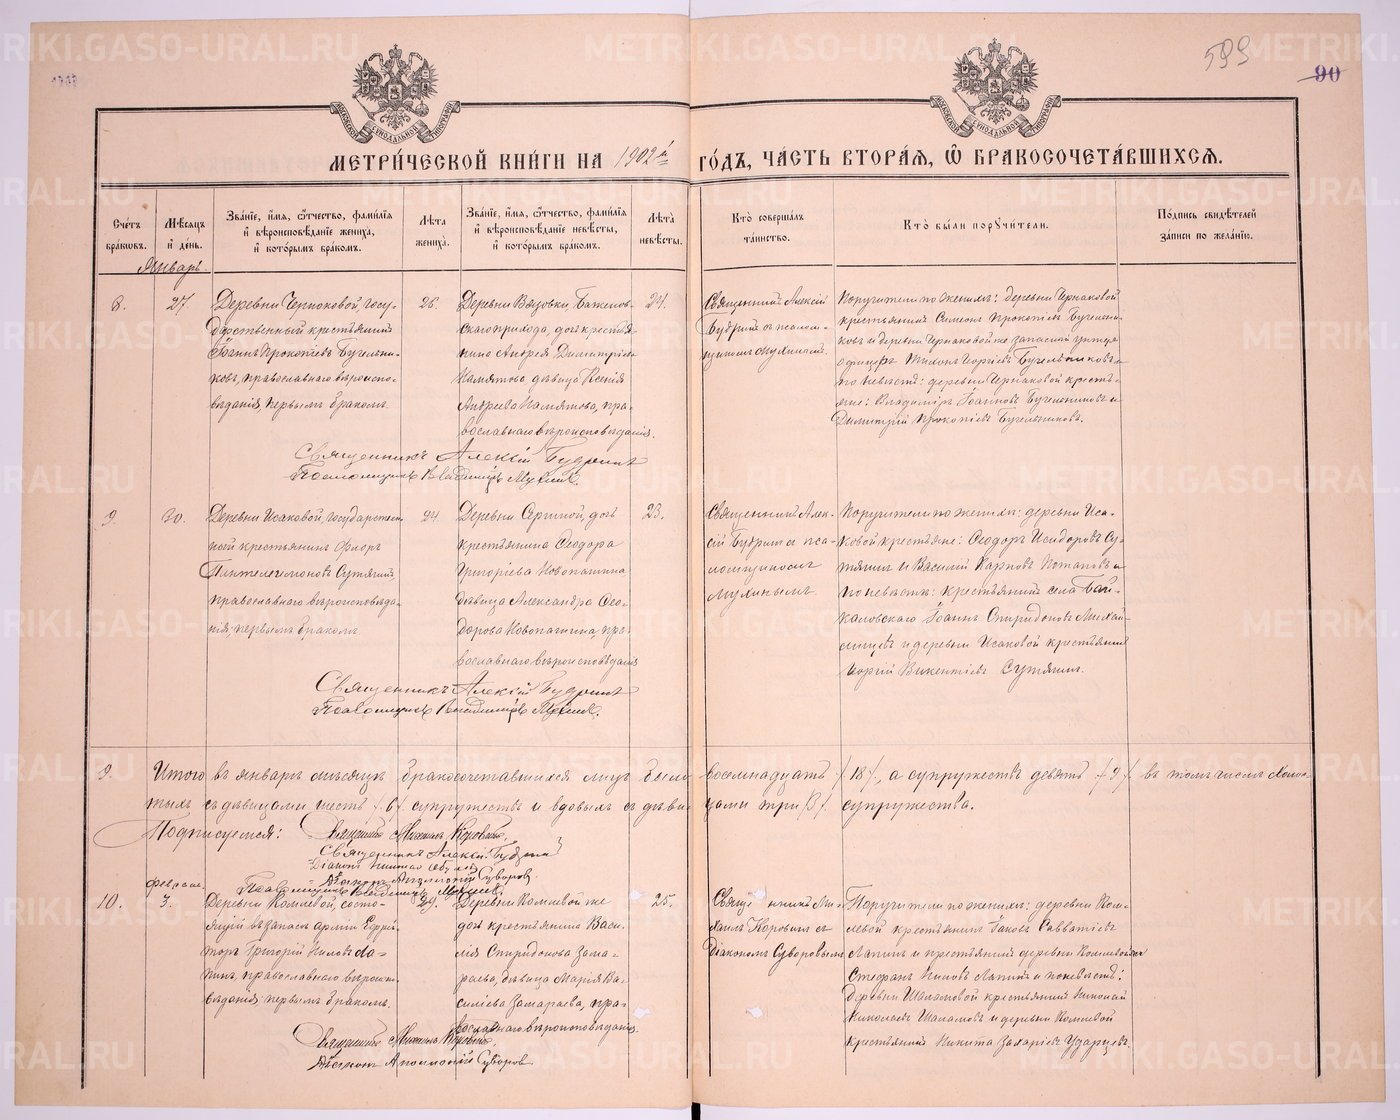 599
90
МЕТРИ́ЧЕСКОЙ КНИ́ГИ НА 1902й ГО́ДЪ, ЧА́СТЬ ВТОРА́Я, Ѽ БРАКОСОЧЕТА́ВШИХСЯ.
Сче́тъ бра́ковъ.
Мѣ́сяцъ и́ де́нь.
Зва́нїе, и́мя, ѻ҆́тчество, фами́лїя и҆ вѣроисповѣ́данїе жениха́, и҆ кото́рымъ бра́комъ.
Лѣ́та жениха́.
Зва́нїе, и́мя, ѻ҆́тчество, фами́лїя и҆ вѣроисповѣ́данїе невѣ́сты, и҆ кото́рымъ бра́комъ.
Лѣ́та невѣ́сты.
Кто̀ соверша́лъ та́инство.
Кто̀ бы́ли порꙋчи́тели.
По́дпись свидѣ́телей за́писи по жела́нїю.
Январь.
8.
27.
Деревни Черпаковой, госу-
дарственный крестьянинъ
Іоаннъ Прокопіевъ Бугельни-
ковъ, православнаго вѣроиспо-
вѣданія, первымъ бракомъ.
26.
Деревни Вязовки, Баженов-
скаго прихода, дочь крестья-
нина Андрея Димитріева
Намятова дѣвица Ксенія
Андреева Намятова, пра-
вославнаго вѣроисповѣданія.
24.
Священникъ Алексій
Будринъ съ псалом-
щикомъ Мухинымъ.
Поручители по женихѣ: деревни Черпаковой
крестьянинъ Симеонъ Прокопіевъ Бугельни-
ковъ и деревни Черпаковой же запасный унтеръ
офицеръ Тихонъ Георгіевъ Бугельниковъ и
по невѣстѣ: деревни Черпаковой кресть-
яне: Владиміръ Іоанновъ Бугельниковъ и
Димитрій Прокопіевъ Бугельниковъ.
Священникъ Алексій Будринъ
Псаломщикъ Владиміръ Мухинъ.
9.
30.
Деревни Исаковой, государствен-
ный крестьянинъ Флоръ
Пантелеимоновъ Сутягинъ,
православнаго вѣроисповѣда-
нія, первымъ бракомъ.
24.
Деревни Сергиной, дочь
крестьянина Ѳеодора
Григоріева Новопашина
дѣвица Александра Ѳео-
дорова Новопашина, пра-
вославнаго вѣроисповѣданія
23.
Священникъ Алек-
сій Будринъ съ пса-
ломщикомъ
Мухинымъ.
Поручители по женихѣ: деревни Иса-
ковой крестьяне: Ѳеодоръ Исидоровъ Су-
тягинъ и Василій Карповъ Потаповъ и
по невѣстѣ: крестьянинъ села Бай-
каловскаго Іоаннъ Спиридоновъ Михай-
лищевъ и деревни Исаковой крестьянинъ
Георгій Викентіевъ Сутягинъ.
Священникъ Алексій Будринъ
Псаломщикъ Владиміръ Мухинъ.
9. Итого въ январѣ мѣсяцѣ бракосочетавшихся лицъ было восемнадцать /18/, а супружествъ девять /9/ въ томъ числѣ холос-
тыхъ съ дѣвицами шесть /6/ супружествъ и вдовыхъ съ дѣви-
цами три /3/ супружества.
Подписуемся: Священникъ Михаилъ Коровинъ,
Священникъ Алексій Будринъ
Діаконъ Аполлоній Суворов.
Псаломщикъ Владиміръ Мухинъ.
февраль.
10.
3.
Деревни Комлевой, состо-
ящій въ запасѣ арміи Ефрей-
торъ Григорій Ниловъ Ла-
пинъ, православнаго вѣроиспо-
вѣданія первымъ бракомъ.
29.
Деревни Комлевой же
дочь крестьянина Васи-
лія Спиридонова Зама-
раева, дѣвица Марія Ва-
силіева Замараева, пра-
вославнаго вѣроисповѣданія.
25.
Священникъ Ми-
хаилъ Коровинъ съ
Діакономъ Суворовымъ
Поручители по женихѣ: деревни Ком-
левой крестьянинъ Іаковъ Савватіевъ
Лапинъ и крестьянинъ деревни Комлевой же
Стефанъ Ниловъ Лапинъ и по невѣстѣ:
Деревни Шаламовой крестьянинъ Николай
Николаевъ Шаламовъ и деревни Комлевой
крестьянинъ Никита Захаріевъ Ударцевъ.
Священникъ Михаилъ Коровинъ,
Діаконъ Аполлоній Суворов.
METRIKI.GASO-URAL.RU